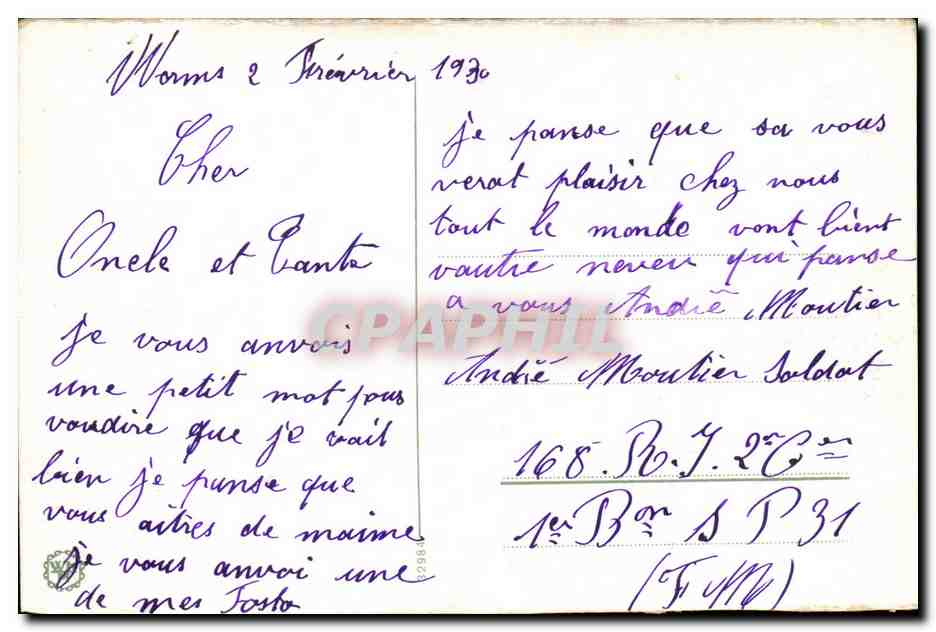 Worms 2 Frévrier 1930
Cher
Oncle et Tante
je vous anvois
une petit mot pour
voudire que je vait
bien je panse que
vous aites de maime
je vous anvoi une
de mes Fosto
je panse que sa vous
verat plaisir chez nous
tout le monde vont bient
vautre neveu qui panse
a vous André Moutier
André Moutier Soldat
168. R. I. 2e Cer
1er Bon S P 31
(F M)
CPAPHIL
32984